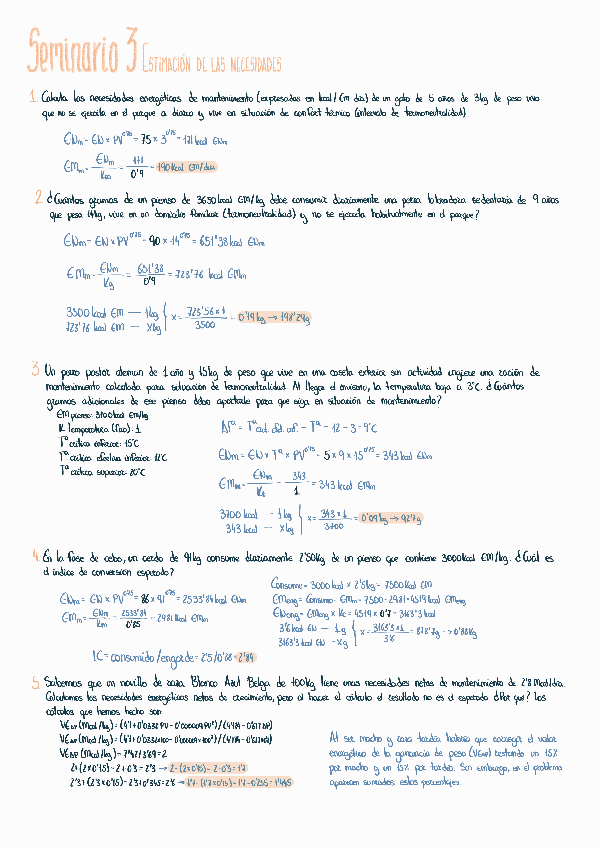 Seminario 3 ESTIMACIÓN DE LAS NECESIDADES
1. Calcula las necesidades energéticas de mantenimiento (expresadas en kcal/Em día) de un gato de 5 años de 3kg de peso vivo
que no se ejercita en el parque a diario y vive en situación de confort térmico (intervalo de termoneutralidad).
ENm = EN × PV^0'75 = 75 × 3^0'75 = 171 kcal ENm
EMm = ENm / Km = 171 / 0'9 = 190 kcal EM/día
2. ¿Cuántos gramos de un pienso de 3650 kcal EM/kg debe consumir diariamente una perra labradora sedentaria de 9 años
que pesa 14kg, vive en un domicilio familiar (termoneutralidad) y no se ejercita habitualmente en el parque?
ENm = EN × PV^0'75 = 90 × 14^0'75 = 651'38 kcal ENm
EMm = ENm / Kg = 651'38 / 0'9 = 723'76 kcal EMm
3500 kcal EM — 1kg
723'76 kcal EM — x kg
x = 723'56 × 1 / 3500 = 0'19 kg → 198'29g
3. Un perro pastor alemán de 1 año y 15kg de peso que vive en una caseta exterior sin actividad ingiere una ración de
mantenimiento calculada para situación de termoneutralidad. Al llegar el invierno, la temperatura baja a 3°C. ¿Cuántos
gramos adicionales de ese pienso debo aportarle para que siga en situación de mantenimiento?
EM pienso: 3700 kcal EM/kg
K Temperatura (frío): 1
Tª crítica inferior: 15°C
Tª crítica efectiva inferior: 12°C
Tª crítica superior: 20°C
ΔTª = Tª crít. efct. inf. - Tª = 12 - 3 = 9°C
ENm = EN × Tª × PV^0'75 = 5 × 9 × 15^0'75 = 343 kcal ENm
EMm = ENm / Kt = 343 / 1 = 343 kcal EMm
3700 kcal — 1kg
343 kcal — x kg
x = 343 × 1 / 3700 = 0'09 kg → 92'7g
4. En la fase de cebo, un cerdo de 91kg consume diariamente 2'50kg de un pienso que contiene 3000 kcal EM/kg. ¿Cuál es
el índice de conversión esperado?
ENm = EN × PV^0'75 = 86 × 91^0'75 = 2533'84 kcal ENm
EMm = ENm / Km = 2533'84 / 0'85 = 2981 kcal EMm
Consume = 3000 kcal × 2'5kg = 7500 kcal EM
EMeng = Consumo - EMm = 7500 - 2981 = 4519 kcal EMeng
ENeng = EMeng × Kc = 4519 × 0'7 = 3163'3 kcal
3'6 kcal EN — 1g
3163'3 kcal EN — x g
x = 3163'3 × 1 / 3'6 = 878'7g → 0'88kg
IC = consumido / engorde = 2'5 / 0'88 = 2'84
5. Sabemos que un novillo de raza Blanco Azul Belga de 400kg tiene unas necesidades netas de mantenimiento de 2'8 Mcal/día.
Calculamos las necesidades energéticas netas de crecimiento, pero al hacer el cálculo el resultado no es el esperado ¿Por qué? Los
cálculos que hemos hecho son:
VE (Mcal/kg) = 7'47/3'69 = 2
2 + (2 × 0'15) = 2 + 0'3 = 2'3 → 2 - (2 × 0'15) = 2 - 0'3 = 1'7
2'3 + (2'3 × 0'15) = 2'3 + 0'345 = 2'6 → 1'7 - (1'7 × 0'15) = 1'7 - 0'255 = 1'445
Al ser macho y raza tardía habría que corregir el valor
energético de la ganancia de peso restando un 15%
por macho y un 15% por tardía. Sin embargo, en el problema
aparecen sumados estos porcentajes.